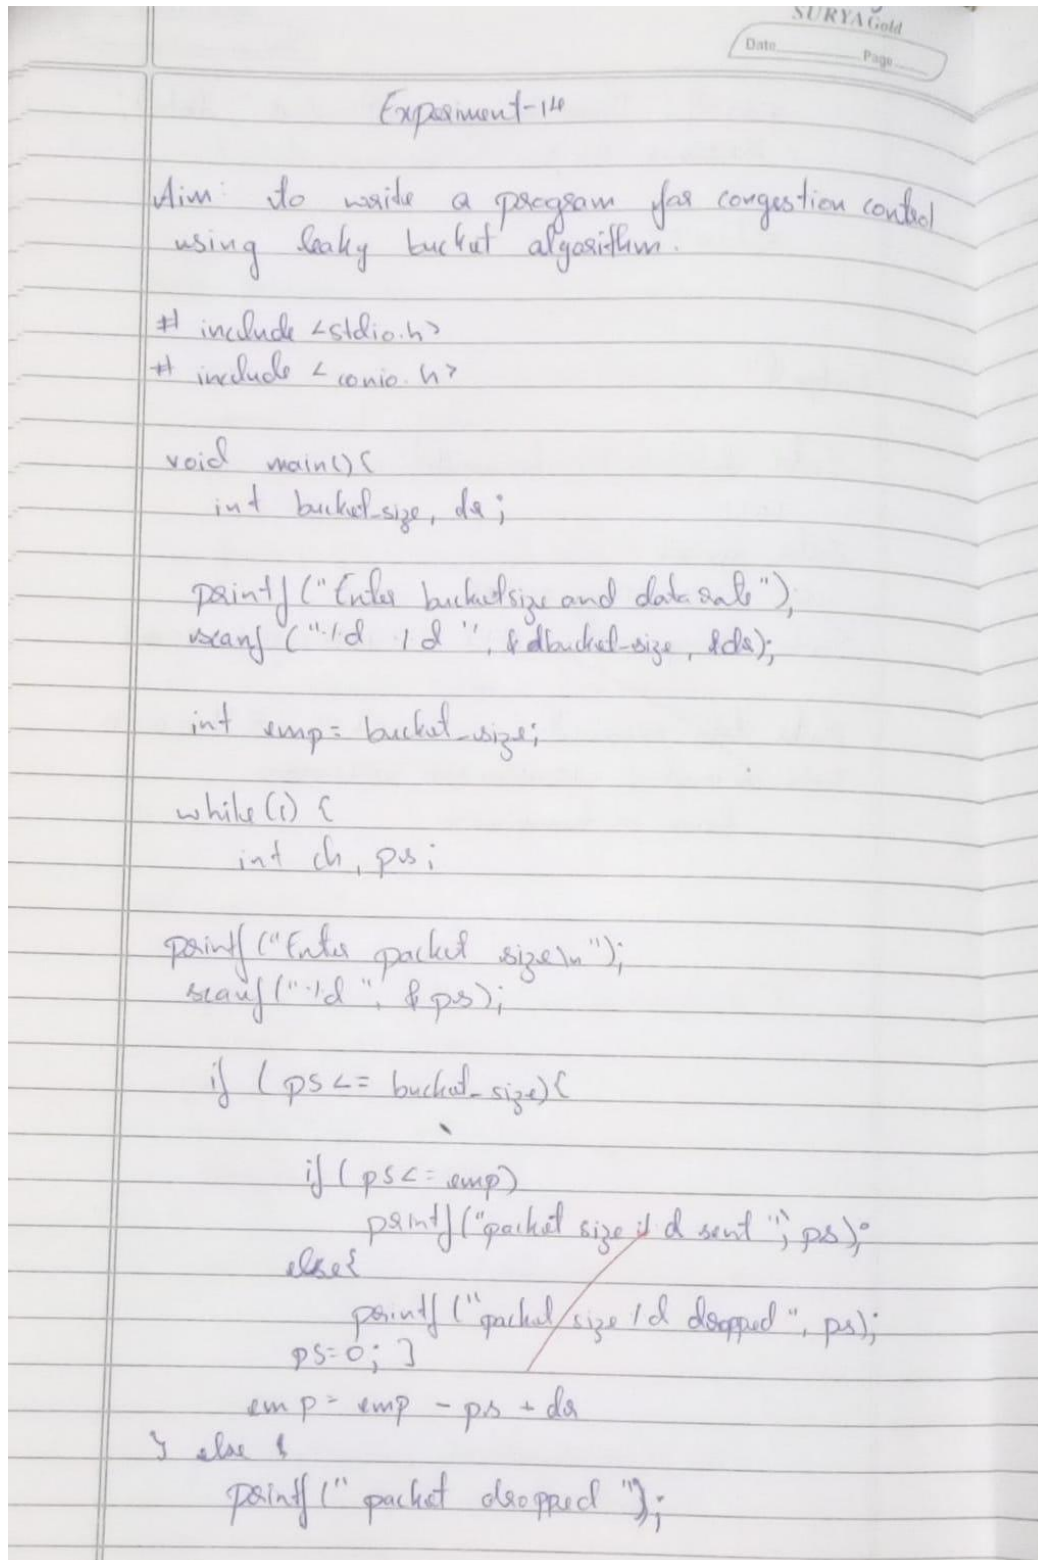 SURYA Gold
Date Page
Experiment-14
Aim: to write a program for congestion control
using leaky bucket algorithm.
# include <stdio.h>
# include <conio.h>
void main(){
int bucket_size, dr;
printf("Enter bucketsize and data rate");
scanf ("%d %d", &dbucket_size, &dr);
int emp= bucket_size;
while(1) {
int ch, ps;
printf("Enter packet size\n");
scanf("%d", &ps);
if (ps<= bucket_size){
if (ps<=emp)
printf("packet size %d sent", ps);
else{
printf("packet size %d dropped", ps);
ps=0; }
emp= emp - ps + dr
} else {
printf("packet dropped");